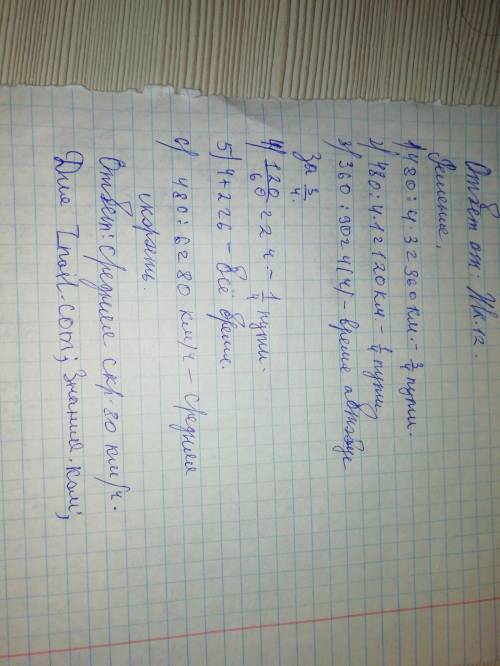 Ответ от:
Решение.
1) 480:4·3=360 км. - 3/4 пути.
2) 480:4·1=120 км. - 1/4 пути
3) 360:90=4(ч) - время автобус
за 3/4.
4) 120/60=2 ч - 1/4 пути.
5) 4+2=6 - всё время.
6) 480:6=80 км/ч - средняя
скорость.
Ответ: средняя скр. 80 км/ч.
Для Znaih.com; Знания.ком;